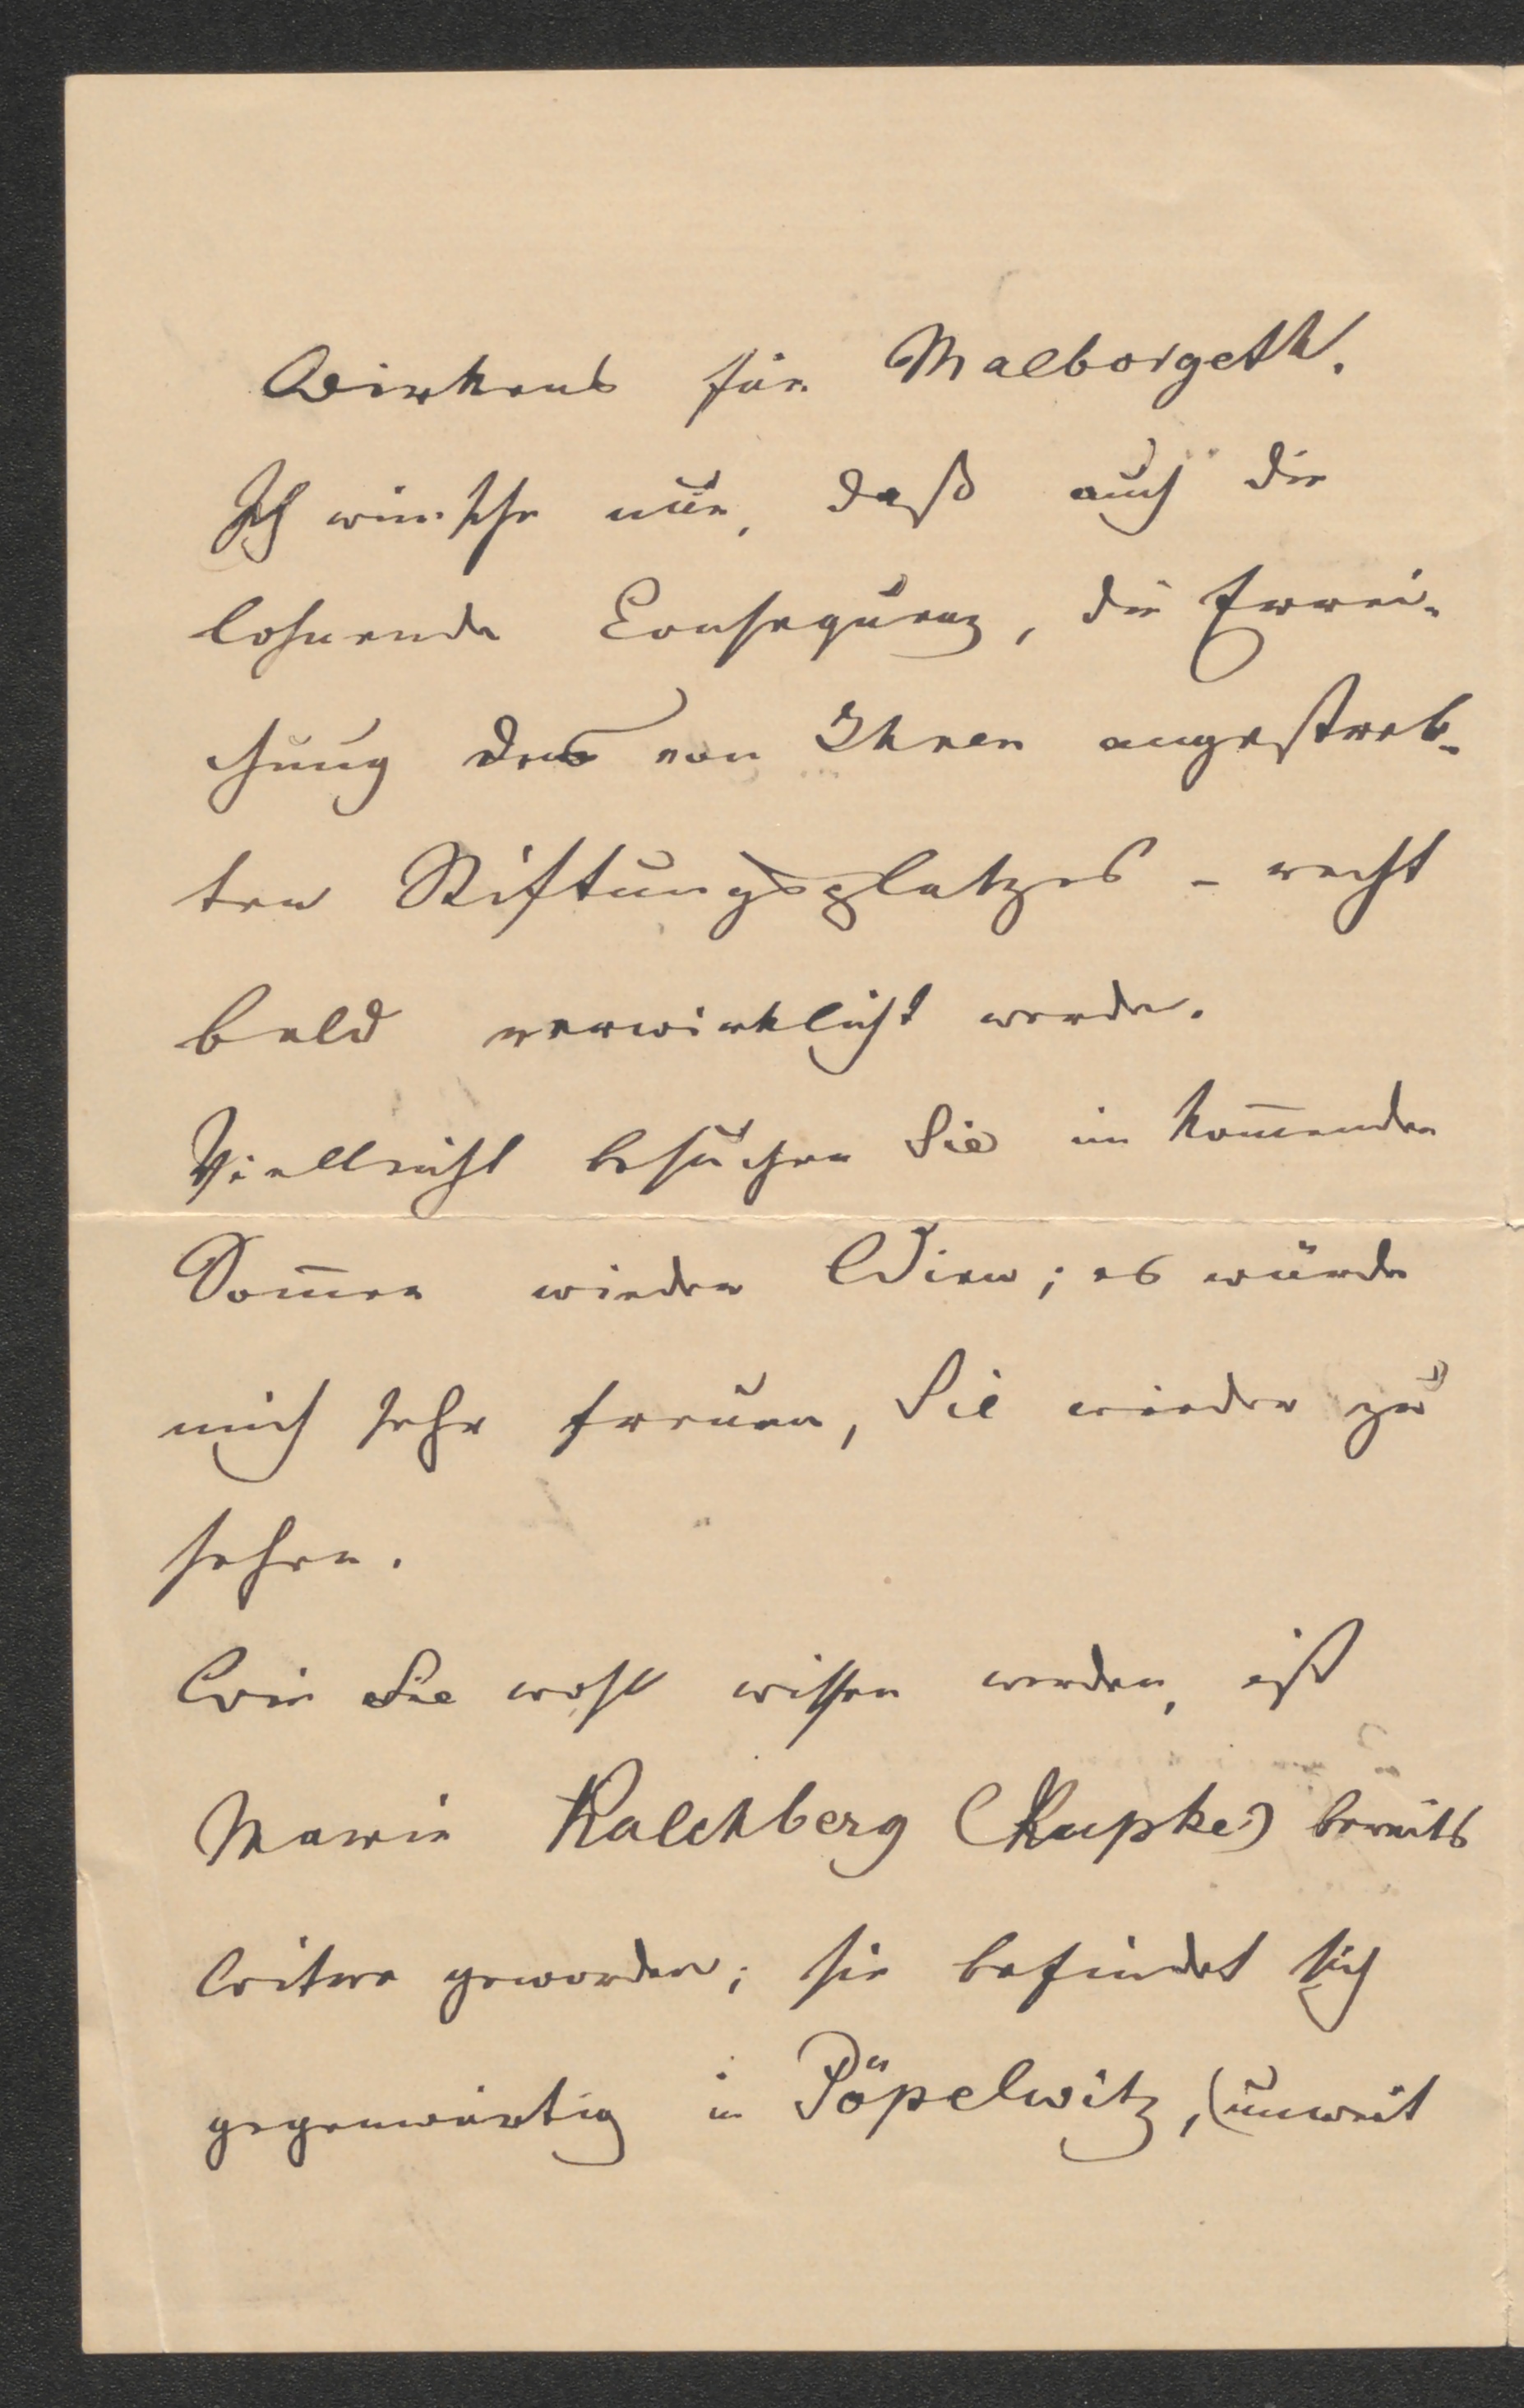 Wirkens für Malborgeth.
Ich wünsche nur, daß auch die
lohnende Consequenz, die Errei-
chung des von Ihnen angestreb-
ten Stiftungsplatzes - recht
bald verwirklicht werde.
Vielleicht besuchen Sie im kom̅enden
Som̅er wieder Wien; es würde
mich sehr freuen, Sie wieder zu
sehen.
Wie Sie wohl wissen werden, ist
Marie Kalchberg (Kupke) bereits
Witwe geworden; sie befindet sich
gegenwärtig in Pöpelwitz, (unweit